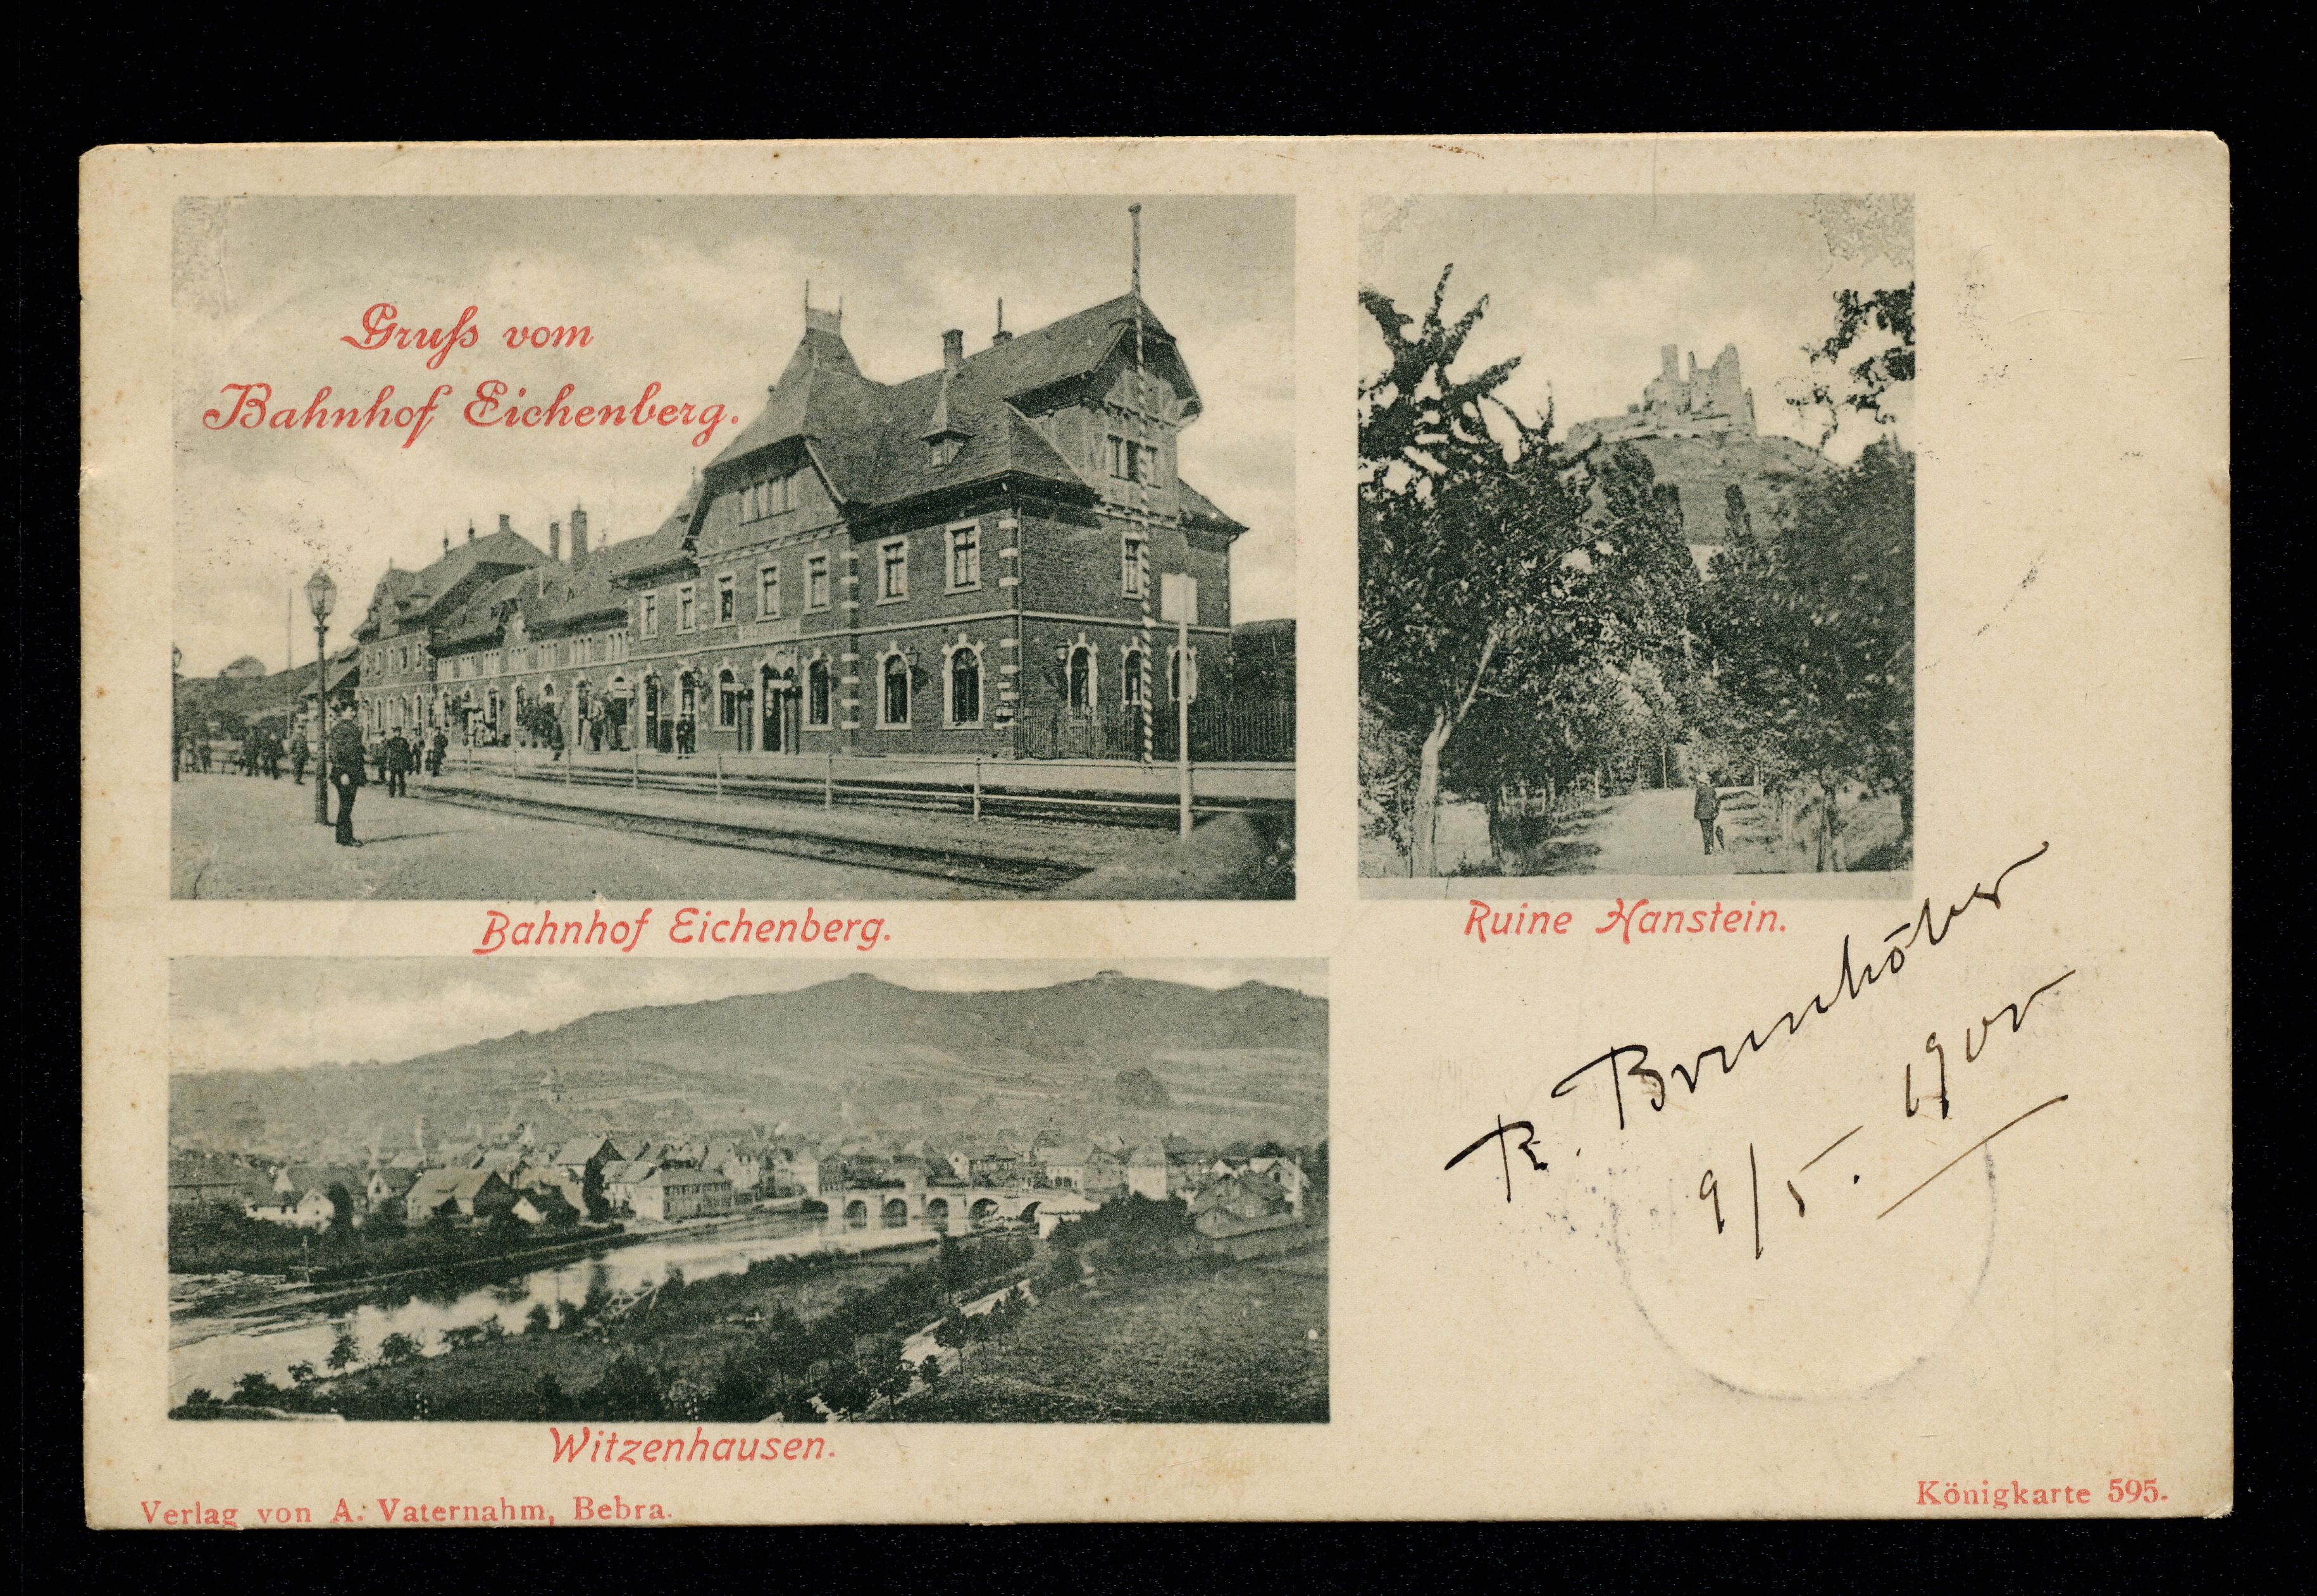 Gruß vom
Bahnhof Eichenberg.
Bahnhof Eichenberg.
Ruine Hanstein.
R.
9/5.
Witzenhausen.
Verlag von A. Vaternahm, Bebra.
Königkarte 595.